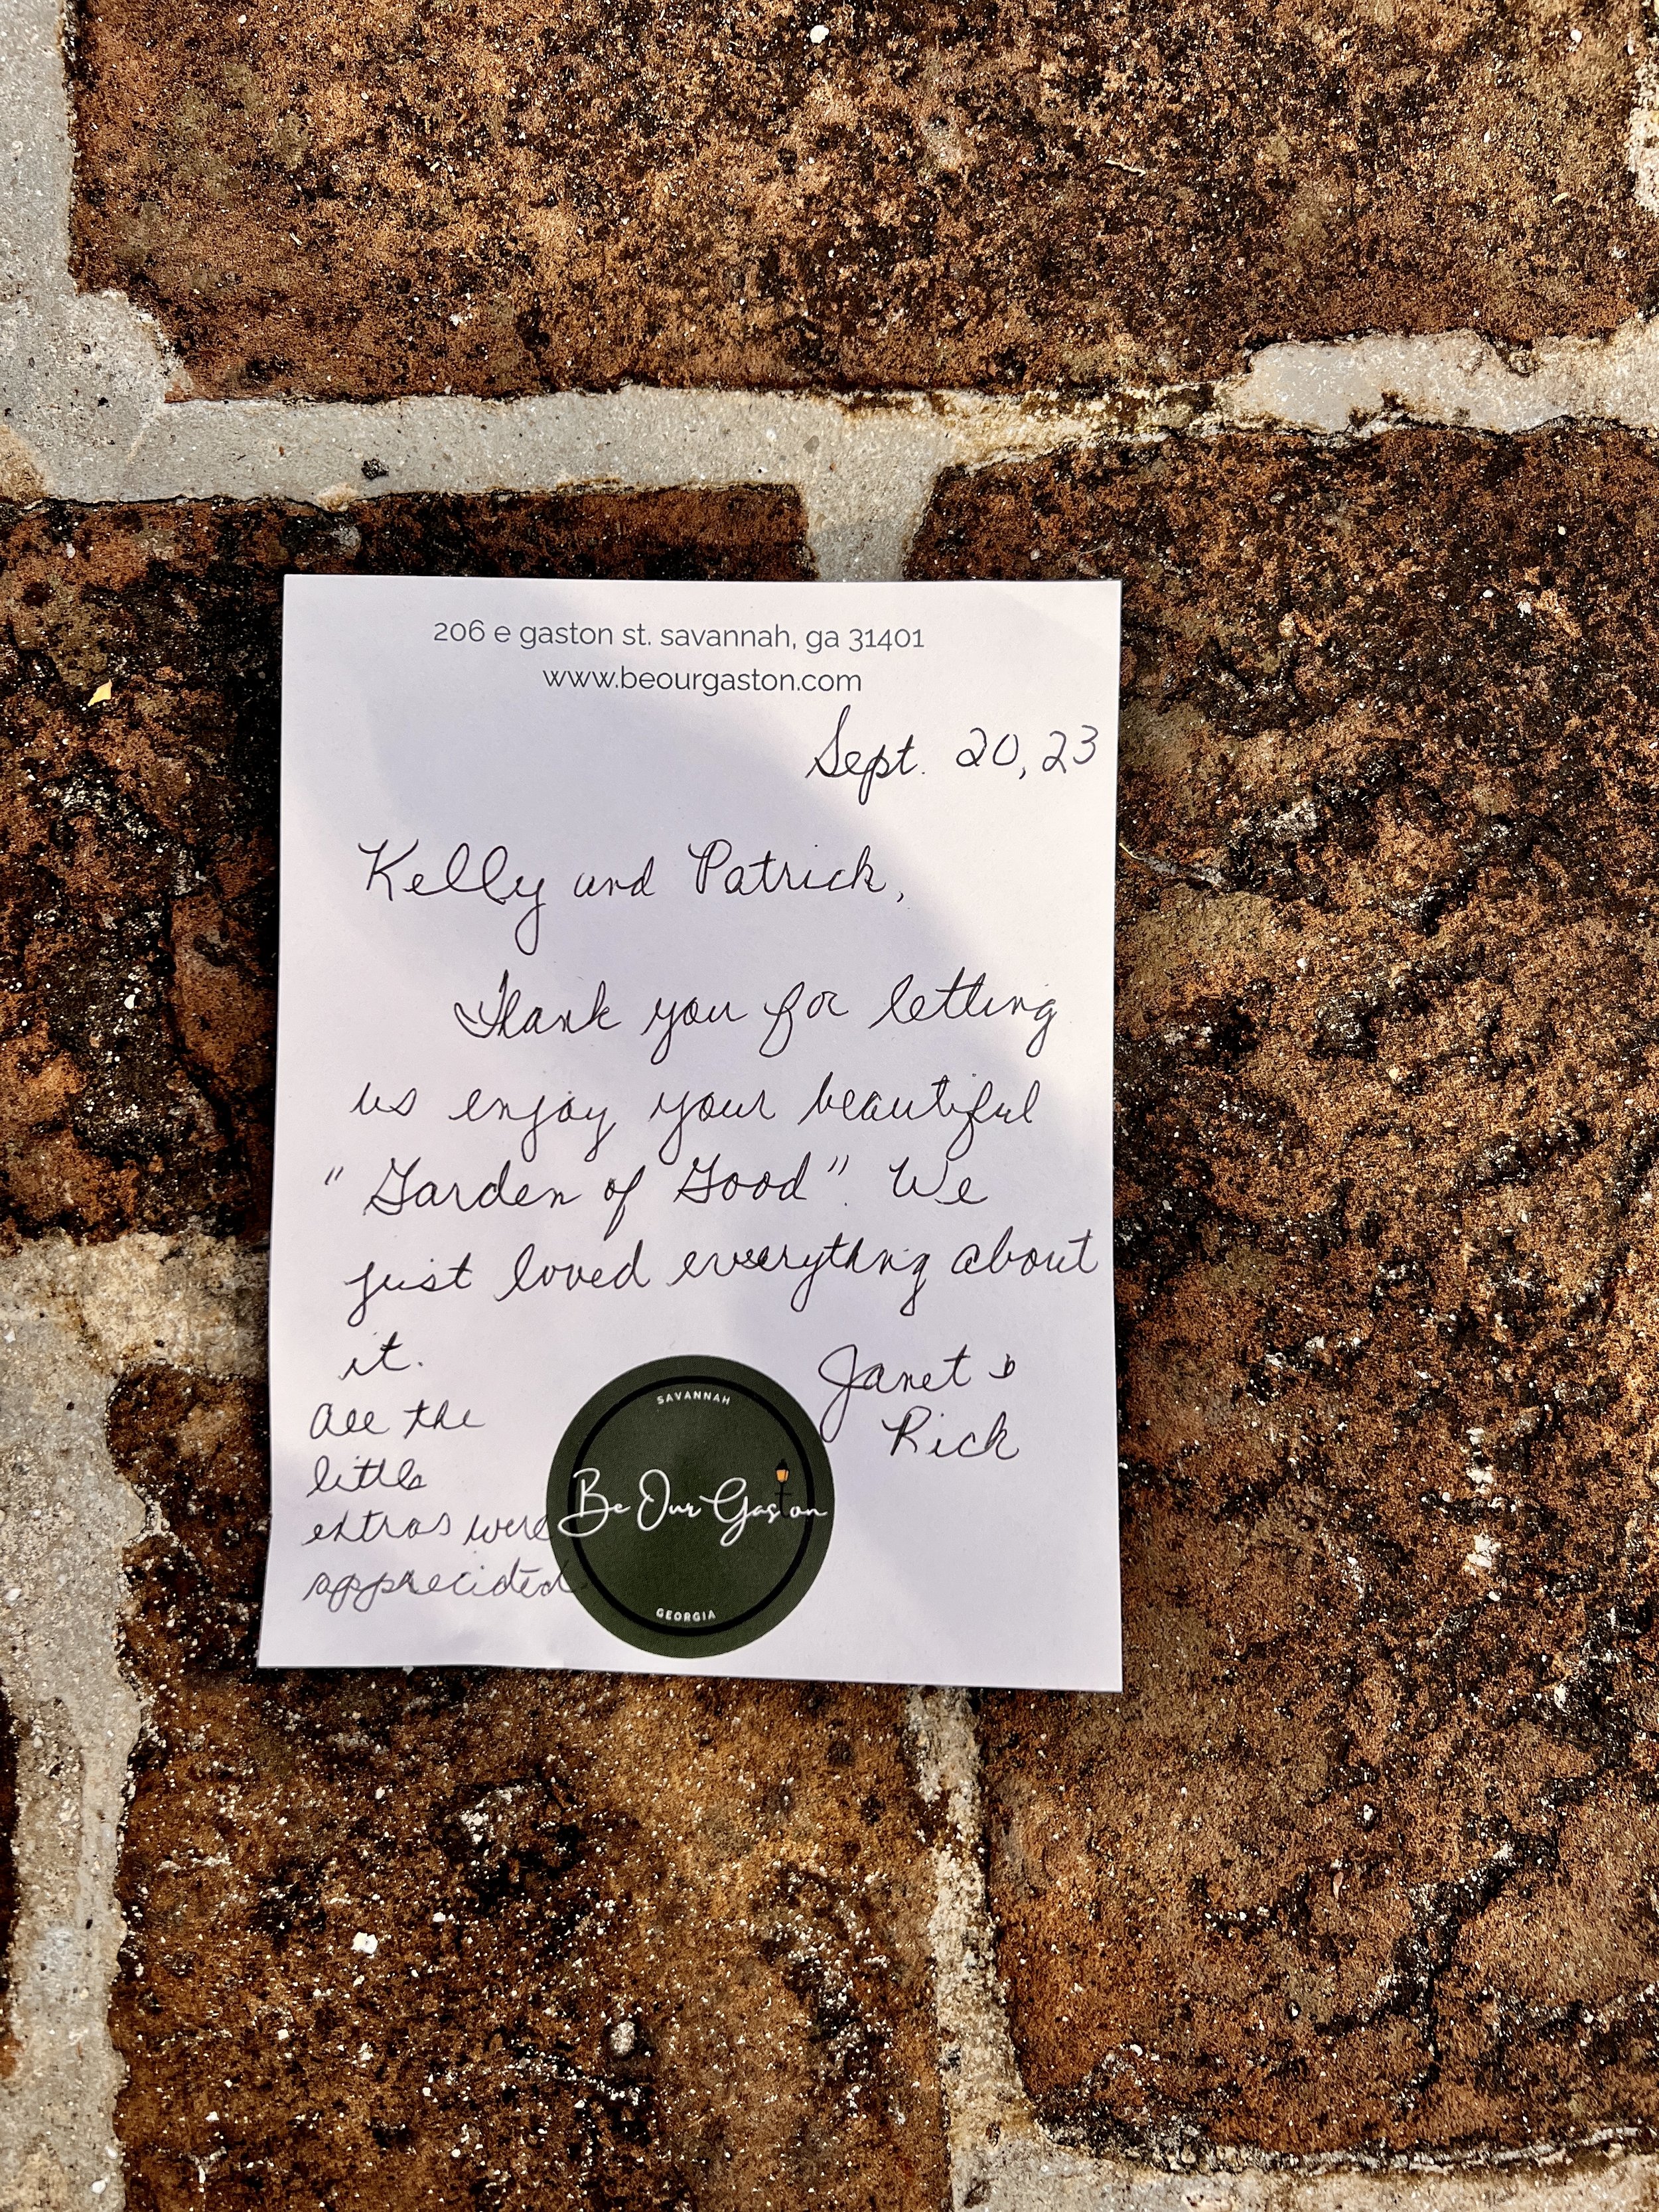 206 e gaston st. savannah, ga 31401
www.beourgaston.com
Sept. 20, 23
Kelly and Patrick,
Thank you for letting
us enjoy your beautiful
"Garden of Good". We
just loved everything about
it.
Janet &
Rick
All the
little
extras were
apprecidted.
SAVANNAH
Be Our Gaston
GEORGIA